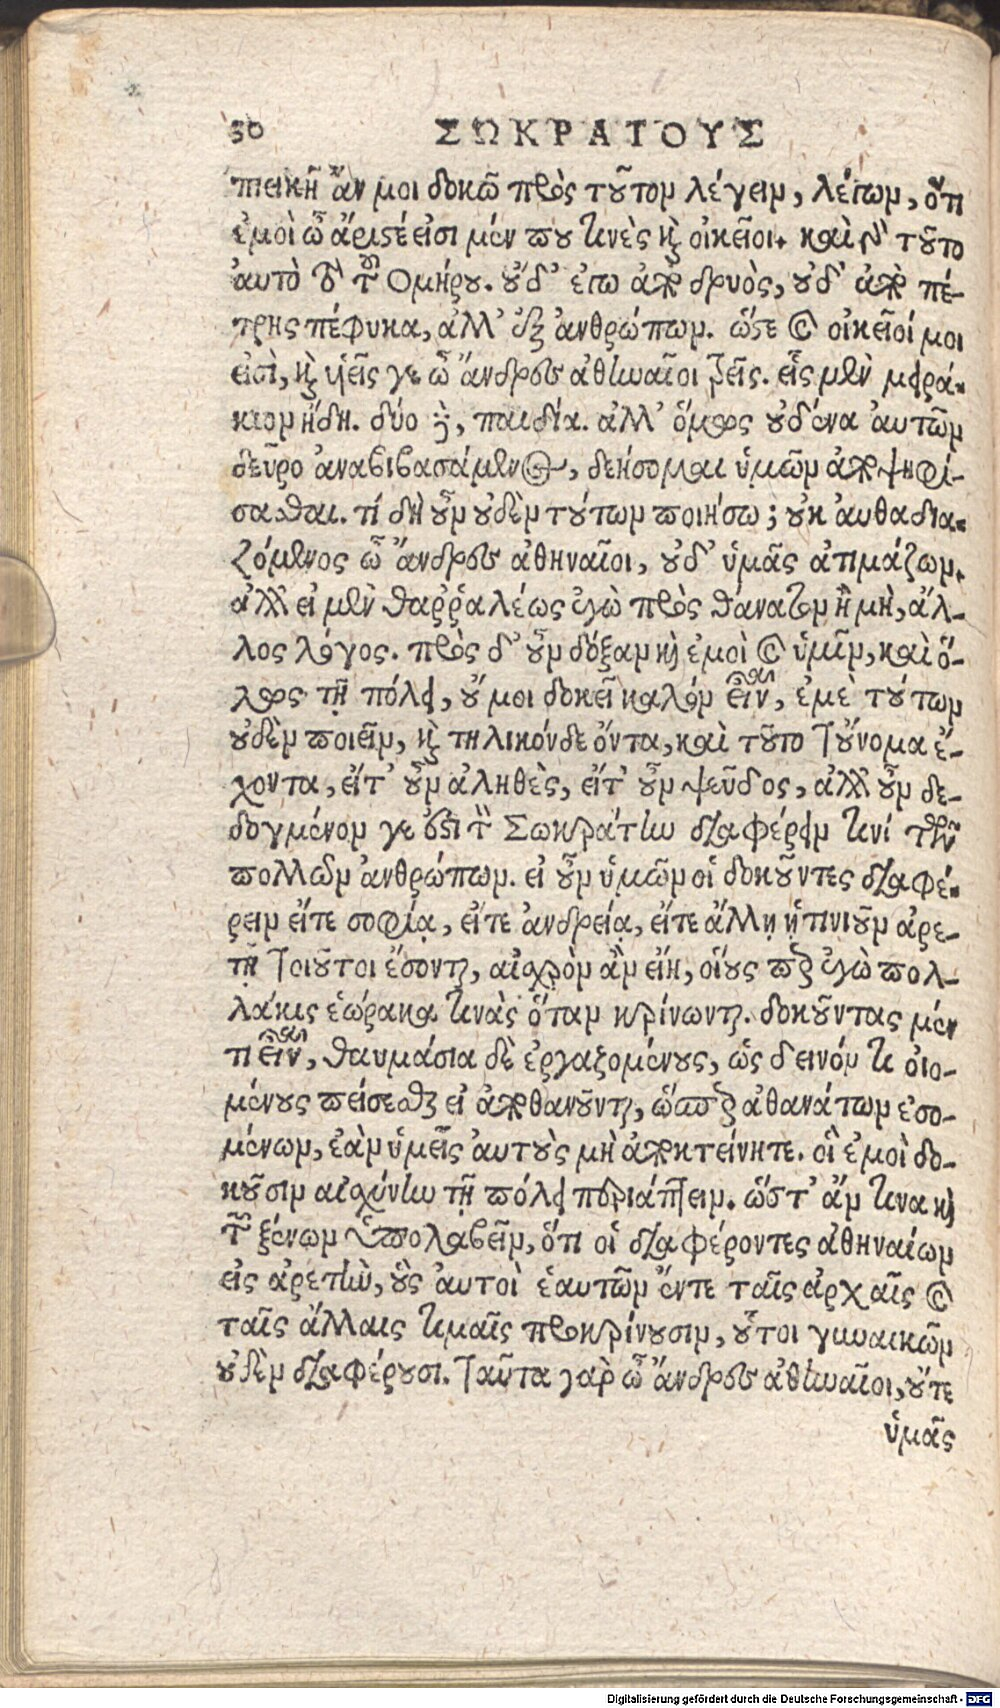 50 ΣΩΚΡΑΤΟΥΣ
πιεικῆ ἄν μοι δοκῶ πρὸς τοῦτον λέγειν, λέγων, ὅτι
ἐμοὶ ὦ ἄριστέ εἰσι μέν που τινὲς καὶ οἰκεῖοι. καὶ γὰρ τοῦτο
αὐτὸ τὸ τοῦ Ομήρου. οὐδ' ἐγὼ ἀπὸ δρυὸς, οὐδ' ἀπὸ πέ-
τρης πέφυκα, ἀλλ' ἐξ ἀνθρώπων. ὥστε καὶ οἰκεῖοί μοι
εἰσὶ, καὶ υἱεῖς γε ὦ ἄνδρες ἀθηναῖοι τρεῖς. εἷς μὲν μειρά-
κιον ἤδη. δύο δὲ, παιδία. ἀλλ' ὅμως οὐδένα αὐτῶν
δεῦρο ἀναβιβασάμενος, δεήσομαι ὑμῶν ἀποψηφί-
σασθαι. τί δὴ οὖν οὐδὲν τούτων ποιήσω; οὐκ αὐθαδια-
ζόμενος ὦ ἄνδρες ἀθηναῖοι, οὐδ' ὑμᾶς ἀτιμάζων.
ἀλλ' εἰ μὲν θαῤῥαλέως ἐγὼ πρὸς θάνατον ἢ μὴ, ἄλ-
λος λόγος. πρὸς δ' οὖν δόξαν καὶ ἐμοὶ καὶ ὑμῖν, καὶ ὅ-
λῃ τῇ πόλει, οὔ μοι δοκεῖ καλὸν εἶναι, ἐμὲ τούτων
οὐδὲν ποιεῖν, καὶ τηλικόνδε ὄντα, καὶ τοῦτο τοὔνομα ἔ-
χοντα, εἴτ' οὖν ἀληθὲς, εἴτ' οὖν ψεῦδος, ἀλλ' οὖν δε-
δογμένον γε ἐστὶ τὸ Σωκράτην διαφέρειν τινί τῶν
πολλῶν ἀνθρώπων. εἰ οὖν ὑμῶν οἱ δοκοῦντες διαφέ-
ρειν εἴτε σοφίᾳ, εἴτε ἀνδρείᾳ, εἴτε ἄλλῃ ᾑτινιοῦν ἀρε-
τῇ τοιοῦτοι ἔσονται, αἰσχρὸν ἂν εἴη, οἵους περ ἐγὼ πολ-
λάκις ἑώρακα τινὰς ὅταν κρίνωνται. δοκοῦντας μέν
τι εἶναι, θαυμάσια δὲ ἐργαζομένους, ὡς δεινόν τι οἰο-
μένους πείσεσθαι εἰ ἀποθανοῦνται, ὥσπερ ἀθανάτων ἐσο-
μένων, ἐὰν ὑμεῖς αὐτοὺς μὴ ἀποκτείνητε. οἳ ἐμοὶ δο-
κοῦσιν αἰσχύνην τῇ πόλει περιάπτειν. ὥστ' ἄν τινα καὶ
τῶν ξένων ὑπολαβεῖν, ὅτι οἱ διαφέροντες ἀθηναίων
εἰς ἀρετὴν, οὓς αὐτοὶ ἑαυτῶν ἔν τε ταῖς ἀρχαῖς καὶ
ταῖς ἄλλαις τιμαῖς προκρίνουσιν, οὗτοι γυναικῶν
οὐδὲν διαφέρουσι. ταῦτα γὰρ ὦ ἄνδρες ἀθηναῖοι, οὔτε
ὑμᾶς
Digitalisierung gefördert durch die Deutsche Forschungsgemeinschaft - DFG